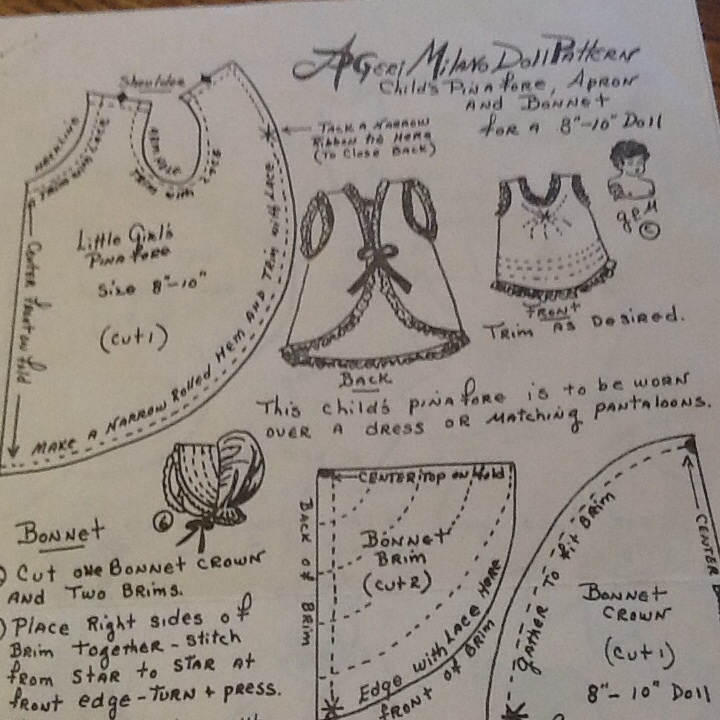 A Geri Milano Doll Pattern
Child's Pinafore, Apron
and Bonnet
for a 8"-10" Doll
Shoulder
Armhole
Trim with Lace
Trim with
Tack a Narrow
Ribbon tie Here
(To Close Back)
Little Girl's
Pinafore
Size 8"-10"
(Cut 1)
Center front on fold
Make a Narrow Rolled Hem and Trim
gem ©
Front
Trim as Desired.
Back
This child's pinafore is to be worn
over a dress or matching pantaloons.
Bonnet
Cut one Bonnet Crown
and Two Brims.
Place Right sides of
Brim together - stitch
from Star to Star at
front edge - turn + press.
6
Center top on fold
Back of Brim
Bonnet
Brim
(Cut 2)
Edge with Lace Here
front of Brim
Gather to fit Brim
Center
Bonnet
Crown
(Cut 1)
8"-10" Doll